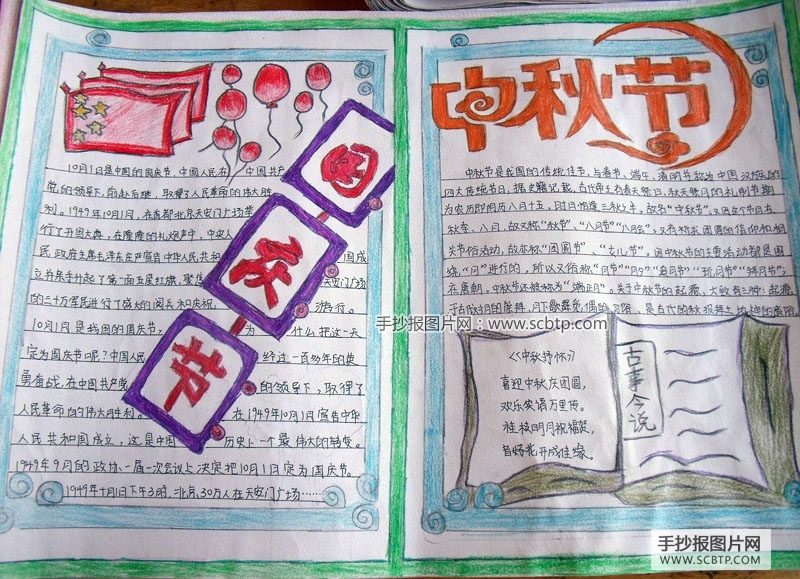 10月1日是中国的国庆节,中国人民在
党的领导下,前赴后继,取得了人民革命的伟大胜
利。1949年10月1日,在首都北京天安门广场举
行了开国大典,在隆隆的礼炮声中,中央人
民政府主席毛泽东庄严宣告中华人民共和国成
立并亲手升起了第一面五星红旗,聚集
天安门广场
的三十万军民进行了盛大的阅兵和庆祝
游行。
10月1日是我国的国庆节,
为
什么把这一天
定为国庆节呢?中国人民
经过一百多年的英
勇奋战,在中国共产党
的领导下,取得了
人民革命的伟大胜利。
在1949年10月1日宣告中华
人民共和国成立,这是中国
历史上一个最伟大的转变。
1949年9月的政协一届一次会议上决定把10月1日定为国庆节。
1949年 下午3时,北京30万人在天安门广场……
国
庆
节
中秋节
中秋节是我国的传统佳节,与春节、端午、清明节称为中国汉族的
四大传统节日。据史籍记载,古代帝王有春天祭日,秋天祭月的礼制,节期
为农历即阴历八月十五,时日恰逢三秋之半,故名“中秋节”,又因这个节日在
秋季、八月,故又称“秋节”、“八月节”“八月会”,又有祈求团圆的信仰和相
关节俗活动,故亦称“团圆节”、“女儿节”。因中秋节的主要活动都是围
绕“月”进行的,所以又俗称“月节”“月夕”“追月节”“玩月节”“拜月节”;
在唐朝,中秋节还被称为“端正月”。关于中秋节的起源,大致有三种:起源
于古代对月的崇拜、月下歌舞觅偶的习俗,是古代的秋报拜土地神的遗俗
《中秋抒怀》
喜迎中秋庆团圆,
欢乐笑语万里传。
桂枝明月祝福至,
良好光开成佳缘。
古事今说
手抄报图片网:www.scbtp.com
手抄报图片网
WWW.SCBTP.COM